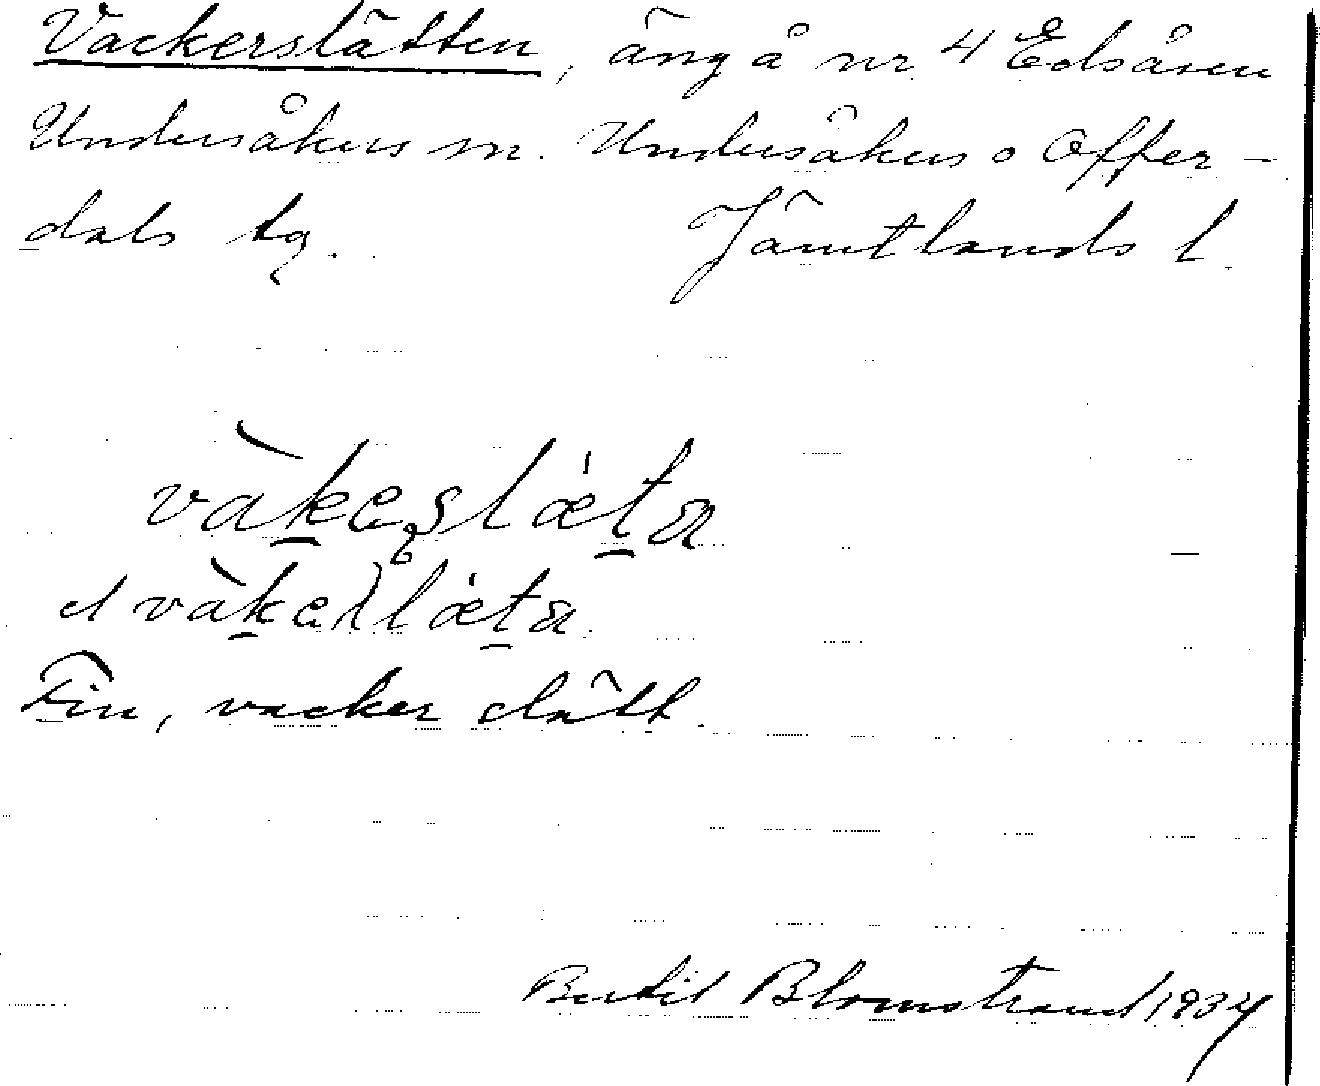 Vackerslätten, äng å nr 4 Edsåsen
Undersåkers sn. Undersåkers o Offer-
dals tg. Jämtlands l.
el
Fin, vacker slätt.
Bertil Blomstrand 1934